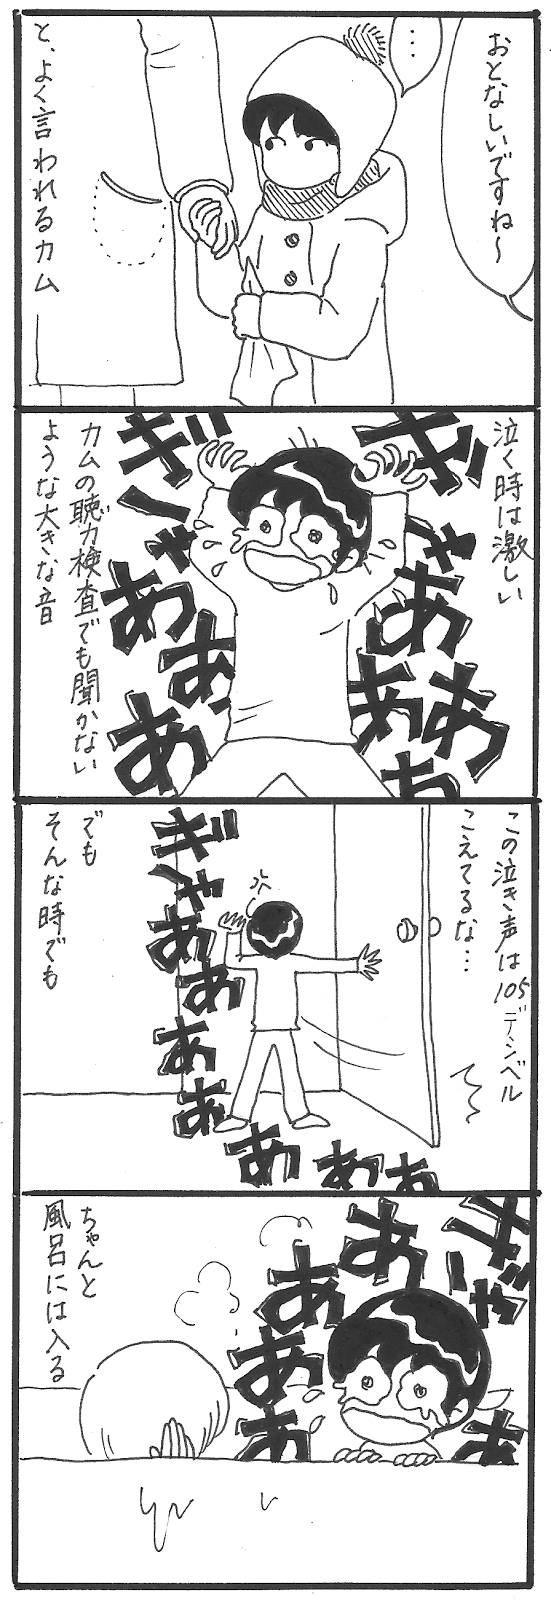 おとなしいですね〜
…
と、よく言われるカム
泣く時は激しい
ぎゃああああ
ぎゃあああ
カムの聴力検査でも聞かない
ような大きな音
この泣き声は105デシベル
こえてるな…
ぎゃああああああああ
でも
そんな時でも
ぎゃああああああ
ちゃんと
風呂には入る